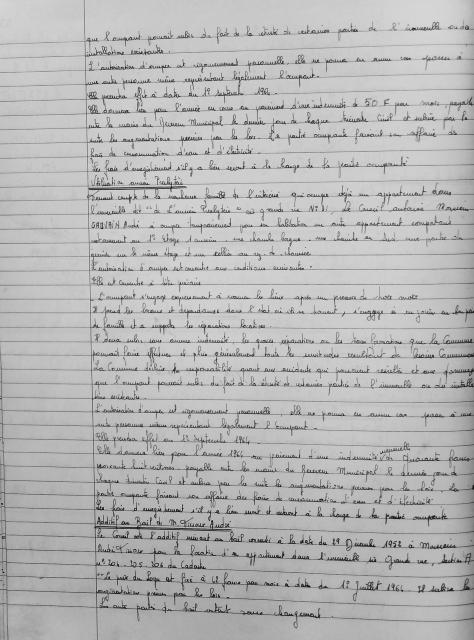 que l'occupant pourrait subir du fait de la vétusté de certaines parties de l'immeuble ou des
installations existantes.
L'autorisation d'occuper est rigoureusement personnelle, elle ne pourra en aucun cas passer à
une autre personne même représentant légalement l'occupant.
Elle prendra effet à dater du 1er septembre 1964.
Elle donnera lieu pour l'année en cours au paiement d'une indemnité de 50 F par mois payable
entre les mains du Receveur Municipal le dernier jour de chaque trimestre Civil et subira par la
suite les augmentations prévues par la loi. La partie occupante faisant son affaire des
frais de consommation d'eau et d'électricité.
Les frais d'enregistrement s'il y a lieu seront à la charge de la partie occupante
Utilisation ancien Presbytère
Tenant compte de la nombreuse famille de l'intéressé qui occupe déjà un appartement dans
l'immeuble dit "de l'ancien Presbytère" sis grande rue N° 21, le Conseil autorise Monsieur
André à occuper temporairement pour son habitation un autre appartement comportant
notamment au 1er étage 1 cuisine - une chambre - une chambre au sud une partie du
grenier sur le même étage et un cellier au rez-de-chaussée.
L'autorisation d'occuper est consentie aux conditions suivantes.
Elle est consentie à titre précaire
- L'occupant s'engage expressément à rendre les lieux après un préavis de trois mois.
Il prend les locaux et dépendances dans l'état où ils se trouvent, s'engage à en jouir en bon père
de famille et à supporter les réparations locatives.
Il devra subir sans aucune indemnité les grosses réparations ou les transformations que la Commune
pourrait faire effectuer et plus généralement toutes les servitudes résultant de travaux Communaux
La Commune décline sa responsabilité quant aux accidents qui pourraient survenir et aux dommages
que l'occupant pourrait subir du fait de la vétusté de certaines parties de l'immeuble ou des installa-
tions existantes.
L'autorisation d'occuper est rigoureusement personnelle, elle ne pourra en aucun cas passer à une
autre personne même représentant légalement l'occupant.
Elle prendra effet au 15 septembre 1964.
Elle donnera lieu pour l'année 1964 au paiement d'une indemnité mensuelle de Quarante francs
payable entre les mains du Receveur Municipal le dernier jour de
chaque trimestre Civil et subira par la suite les augmentations prévues par la loi. La
partie occupante faisant son affaire des frais de consommation d'eau et d'électricité
Les frais d'enregistrement s'il y a lieu seront à la charge de la partie occupante
Additif au Bail de M. André
Le Conseil de l'additif suivant au bail consenti à la date du 29 Décembre 1952 à Monsieur
André pour la location d'un appartement dans l'immeuble sis Grande rue, section A
n° 204 - 205 - 206 du Cadastre
"Le prix du loyer est fixé à francs par mois à dater du 1er Juillet 1964. Il subira les
augmentations prévues par la loi.
Les autres parties du bail restent sans changement.